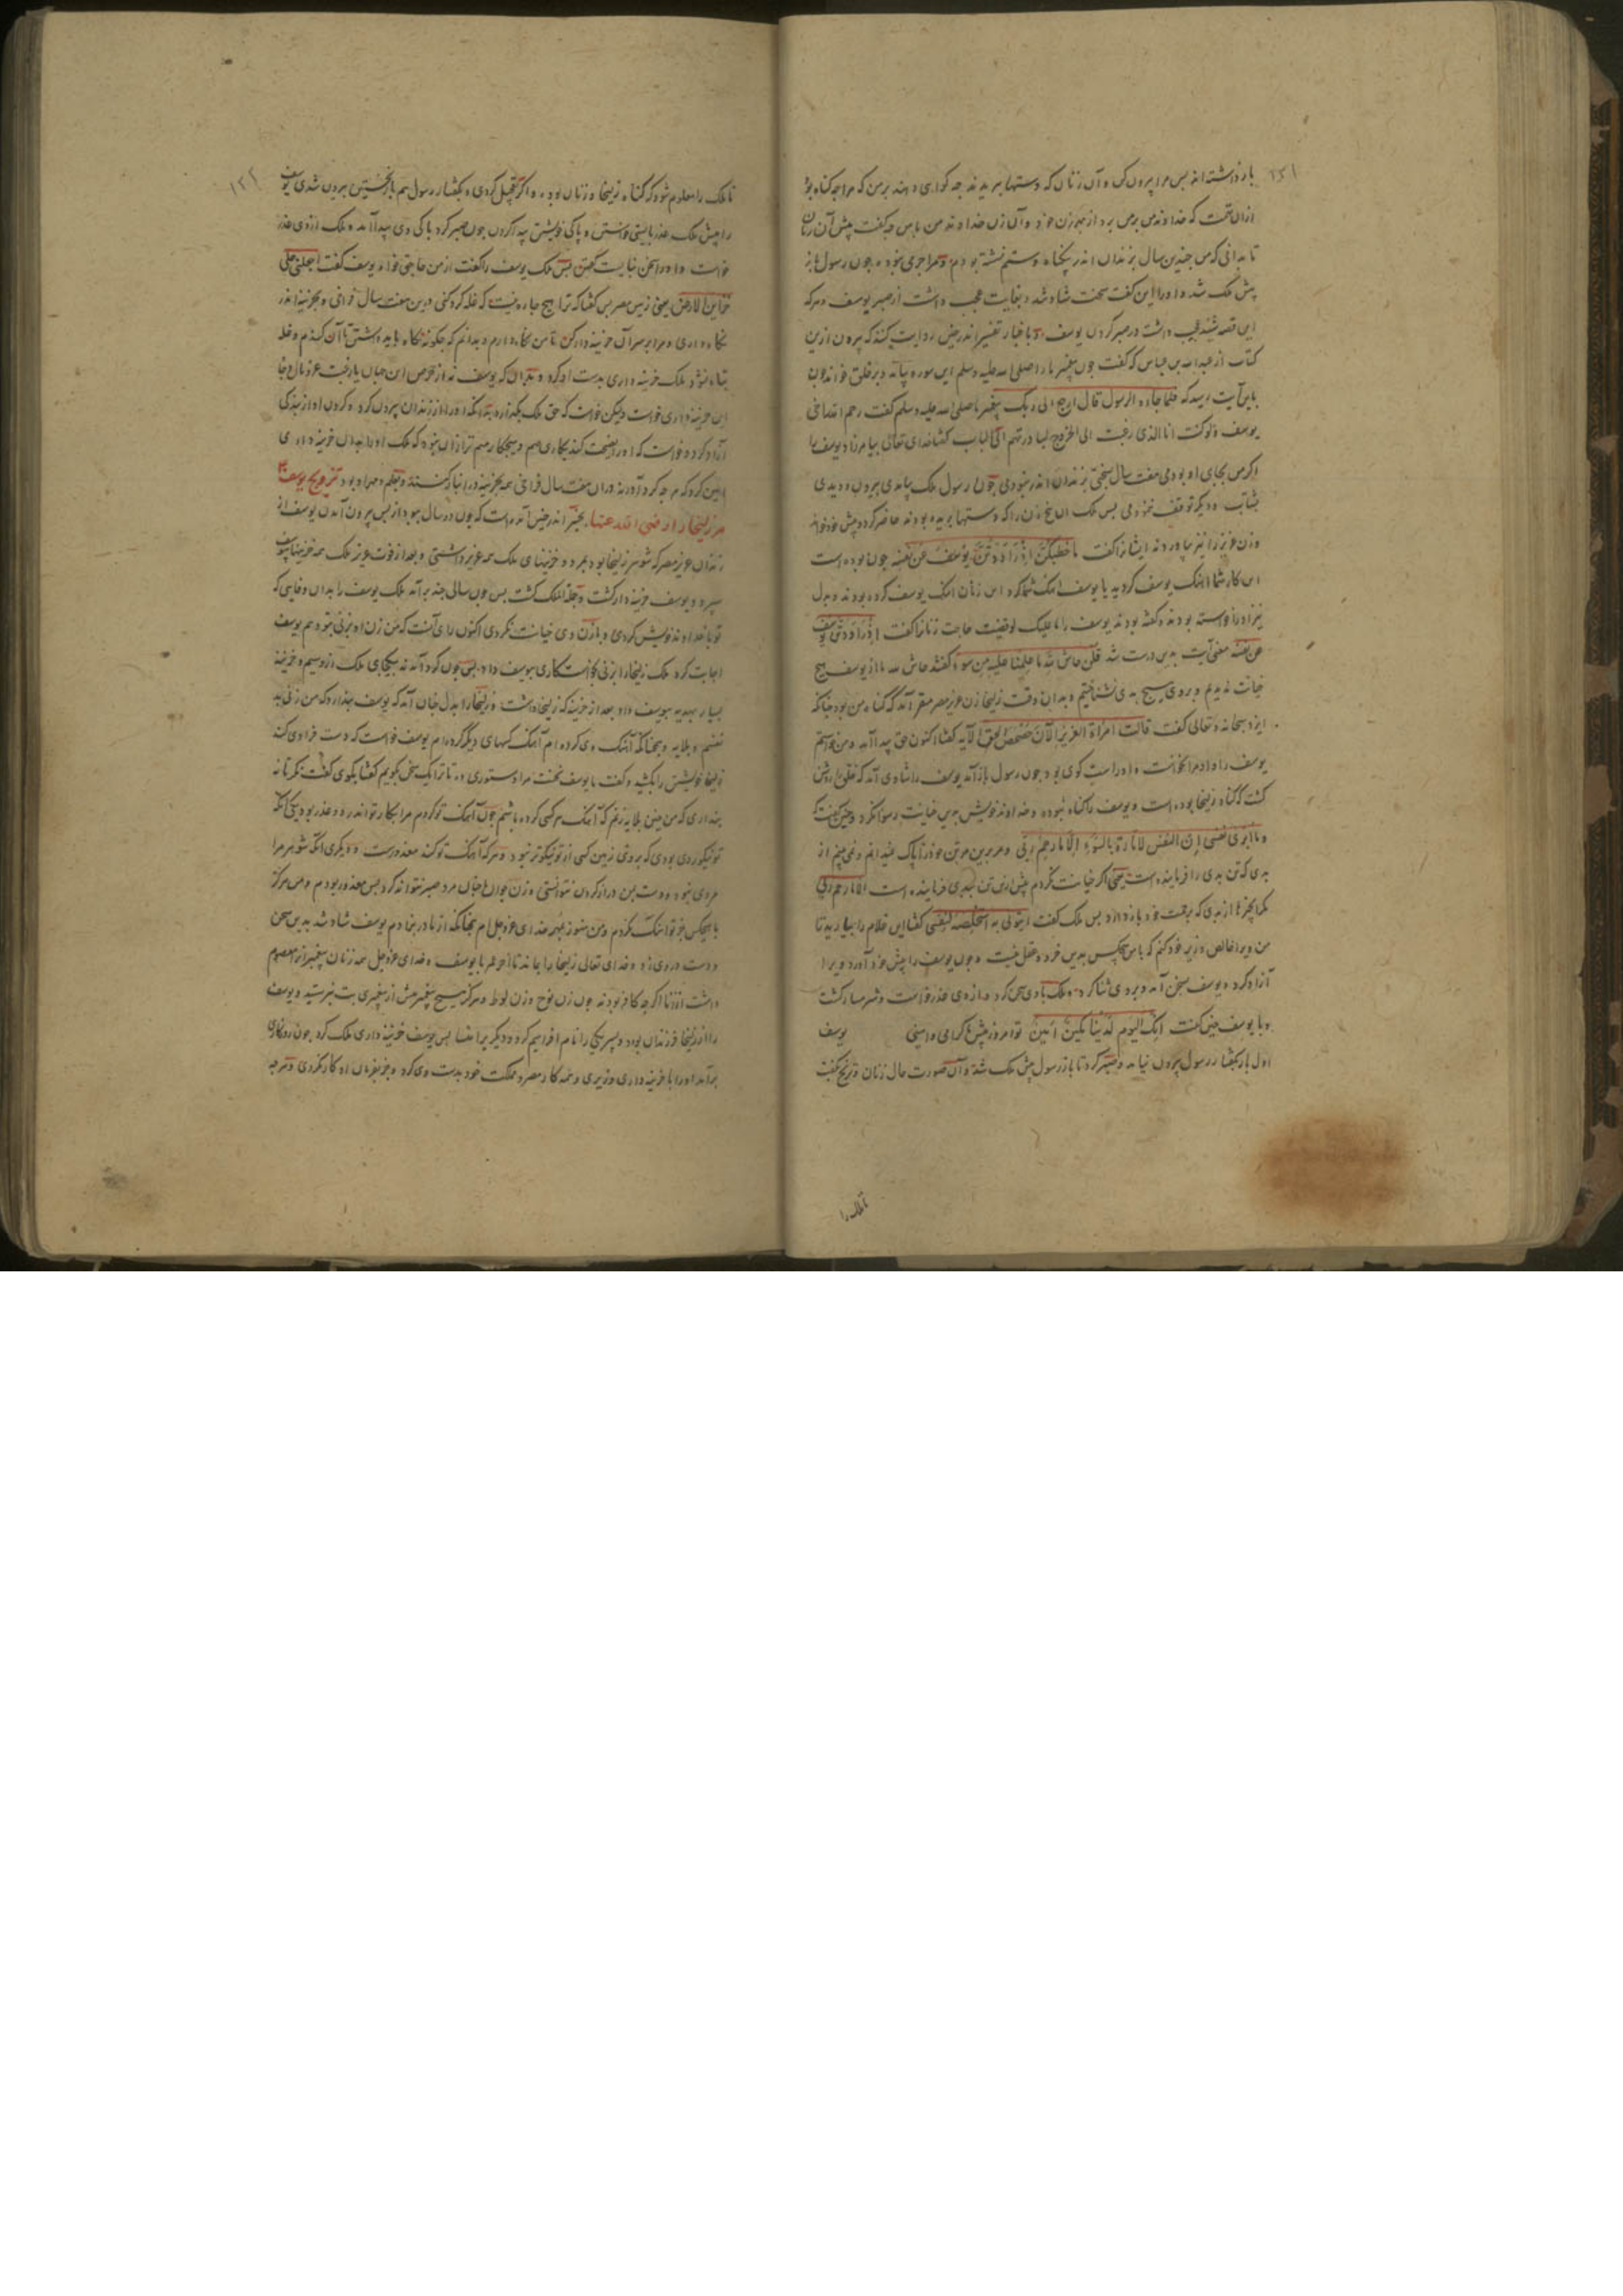 ۱۲۱
باز داشته اند بس مرا بیرون کن و آن زنان که دستها ببریدند چه کواهی دهند بر من که مرا چه کناه بود
از آن تهمت که خداوند من بر من برد از بهر زن خود و آن زن خداوند من با من چه کفت پیش آن زنان
تا بدانی که من چندین سال بزندان اندر بیکناه و ستم نشسته بودم و مرا جرمی نبود و چون رسول باز
پیش ملک شد و او را این کفت سخت شاد شد و بغایت عجب داشت از صبر یوسف و هر که
این قصه شنید عجب داشت در صبر کردن یوسف و باخبار تفسیر اندر چنین روایت کنند که بیرون ازین
کتاب از عبد الله بن عباس که کفت چون پیغمبر ما را صلی الله علیه وسلم این سوره بیامد و بر خلق خواند چون
باین آیت رسید که فلما جاءه الرسول قال ارجع الی ربک پیغمبر ما صلی الله علیه وسلم کفت رحم الله اخی
یوسف و لو کنت انا الذی رغبت الی الخروج لبادرتهم الی الباب کفتا خدای تعالی بیامرزاد یوسف را
اکر من بجای او بودمی هفت سال بسختی بزندان اندر نبودمی چون رسول ملک بیامدی بیرون دویدمی
بشتاب و دیکر توقف ننمودمی بس ملک آن پنج زن را که دستها بریده بودند حاضر کرد و پیش خود خواند
و زن عزیز را نیز بیاوردند ایشانرا کفت ما خطبکن اذ راودتن یوسف عن نفسه چون بوده است
این کار شما آهنک یوسف کردید یا یوسف آهنک شما کرد این زنان آهنک یوسف کرده بودند و بدل
نیز او را خواسته بودند و کفته بودند یوسف را ما علیک لو قضیت حاجت زنانرا کفت اذ راودتن یوسف
عن نفسه معنی آیت بدین درست شد قلن حاش لله ما علمنا علیه من سوء کفتند حاش لله ما از یوسف هیچ
خیانت ندیدیم و بر وی هیچ بدی نشناختیم و بدان وقت زلیخا زن عزیز مصر مقر آمد که کناه من بود چنانکه
ایزد سبحانه و تعالی کفت قالت امرأة العزیز الآن حصحص الحق الآیه کفتا اکنون حق پیدا آمد و من خواستم
یوسف را و او مرا نخواست و او راست کوی بود چون رسول باز آمد یوسف را شادی آمد که خلق را روشن
کشت که کناه زلیخا بوده است و یوسف را کناه نبوده و خداوند خویش بدین خیانت رسوا نکرد و چنین کفت که
و ما ابری نفسی ان النفس لامارة بالسوء الا ما رحم ربی و من بدین هر تن خود را پاک نمیدانم و نمی بینم از
بدی که تن بدی را فرماینده است یعنی اکر خیانت نکردم پیش ازین تن ببدی فرماینده است الا ما رحم ربی
مکر انچه را از بدی که برحمت خود باز دارد بس ملک کفت ایتونی به استخلصه لنفسی کفتا این غلام را بیارید تا
من ویرا خالص وزیر خود کنم که با من هیچکس بدین خرد و عقل نیست و چون یوسف را پیش خود آورد ویرا
آزاد کرد و یوسف بسخن آمد و بر وی ثنا کرد و ملک با وی سخن کرد و از وی عذر خواست و شرمسار کشت
و با یوسف چنین کفت انک الیوم لدینا مکین امین تو امروز پیش ما کرامی و امینی یوسف
اول بار بکفتار رسول بیرون نیامد و صبر کرد تا باز رسول پیش ملک شد و آن صورت حال زنان و ترنج بکفت
تا ملک را
۱۲۲
تا ملک را معلوم شود که کناه زلیخا و زنان بوده و اکر تعجیل کردی و بکفتار رسول هم بار نخستین بیرون شدی یوسف
را پیش ملک عذر بایستی خواستن و پاکی خویشتن پیدا کردن چون صبر کرد پاکی وی پیدا آمد و ملک از وی عذر
خواست و او را سخن نبایست کفتن بس ملک یوسف را کفت از من حاجتی خواه یوسف کفت اجعلنی علی
خزاین الارض یعنی زمین مصر بس کفتا که ترا هیچ چاره نیست که غله کرد کنی درین هفت سال فراخی و بخزینه اندر
نکاه داری و مرا بر سر آن خزینه دار کن تا من نکاه دارم و بدانم که چکونه نکاه باید داشتن تا آن کندم و غله
تباه نشود ملک خزینه داری بدست او کرد و بدان که یوسف نه از حرص این جهان یا رغبت عز و مال و جاه
این خزینه داری خواست ولیکن خواست که حق ملک بکذارد بدانکه او را از زندان بیرون کرد و کردن او از بندکی
آزاد کرد و خواست که او را نصیحت کند بکاری مهم و هیچ کار مهم تر از آن نبود که ملک او را بدان خزینه داری
امین کرد و که هر چه کرد آورند در آن هفت سال فراخی همه بخزینه در انبار کنند و بقلم و مهر او بود تزویج یوسف
مر زلیخا را رضی الله عنها بخبر اندر چنین آمده است که چون دو سال ببود از بس بیرون آمدن یوسف از
زندان عزیز مصر که شوهر زلیخا بود بمرد و خزینهای ملک همه عزیز داشتی و بعد از فوت عزیز ملک همه خزینها بیوسف
سپرد و یوسف خزینه دار کشت و جمله الملک کشت بس چون سالی چند برآمد ملک یوسف را بدان وفایی که
تو با خداوند خویش کردی و با زن وی خیانت نکردی اکنون رای آنست که من زن او بزنی بتو دهم یوسف
اجابت کرد ملک زلیخا را بزنی بخواستکاری بیوسف داد بس چون کرد آمدند بیکجای ملک از زر و سیم و خزینه
بسیار بهدیه بیوسف داد بعد از خزینه که زلیخا داشت و زلیخا را بدل چنان آمد که یوسف پندارد که من زنی بد
نفسم و بلایه و بچنانکه آهنک وی کرده ام آهنک کسهای دیکر کرده ام یوسف خواست که دست فرا وی کند
زلیخا خویشتن را بکشید و کفت یا یوسف نخست مرا دستوری ده تا ترا یک سخن بکویم کفتا بکوی کفت نکر تا نه
پنداری که من چنین بلایه زنم که آهنک هر کسی کرده باشم چون آهنک تو کردم مرا بکار تو اندر دو عذر بود یکی آنکه
تو نیکو روی بودی که بر روی زمین کس از تو نیکوتر نبود و هر که آهنک تو کند معذورست و دیکری آنکه شوهر مرا
مردی نبود و دست بمن دراز کردن نتوانستی و زن جوان با چنان مرد صبر نتواند کرد بس معذور بودم و من هرکز
با هیچکس جز تو آهنک نکردم و من هنوز بمهر خدای عز و جل ام بچنانکه از مادر بزادم یوسف شاد شد بدین سخن
دست در وی زد و خدای تعالی زلیخا را بماند تا آخر عمر با یوسف و خدای عز و جل همه زنان پیغمبران را معصوم
داشت از زنا اکر چه کافر بودند چون زن نوح و زن لوط و هرکز هیچ پیغمبر پیش از پیغمبری بت نپرستید و یوسف
را از زلیخا فرزندان بود دو پسر یکی را نام افراییم کرد و دیکر یرا منشا بس یوسف خزینه داری ملک کرد چون روزکاری
برآمد او را با خزینه داری وزیری و همه کار مصر و مملکت خود بدست وی کرد و جز بفرمان او کار نکردی و هر چه